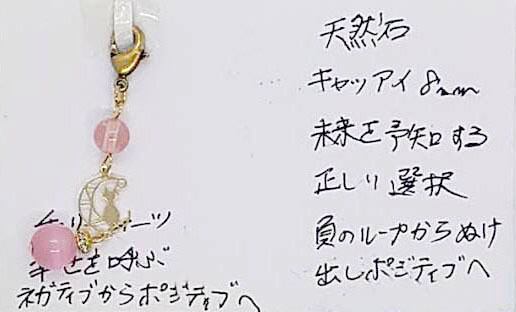 天然石
キャッアイ 8mm
未来を予知する
正しい選択
負のループからぬけ
出しポジティブへ
幸せを呼ぶ
ネガティブからポジティブへ